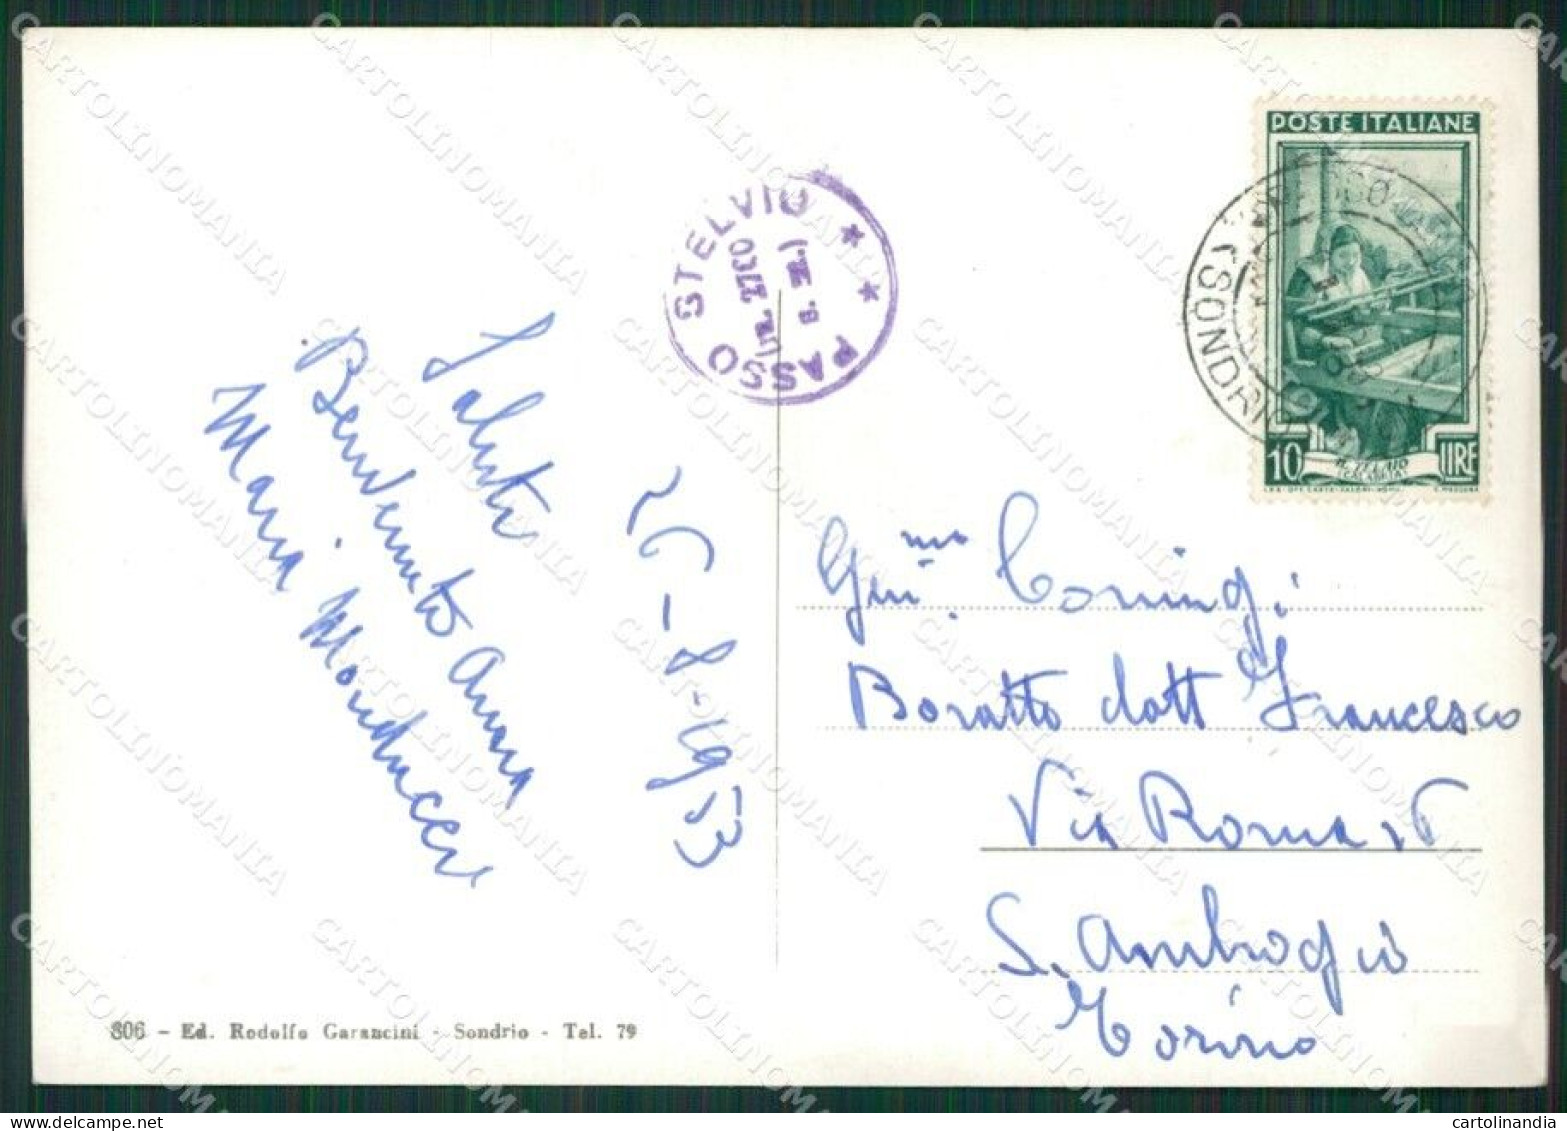 Saluti
Benvenuto Anna
Maria Monducci
26-8-1953
PASSO STELVIO
POSTE ITALIANE
(SONDRIO)
10 LIRE
Boratto dott Francesco
Via Roma
S. Ambrogio
Torino
806 - Ed. Rodolfo Garancini - Sondrio - Tel. 79
CARTOLINOMANIA
cartolinandia